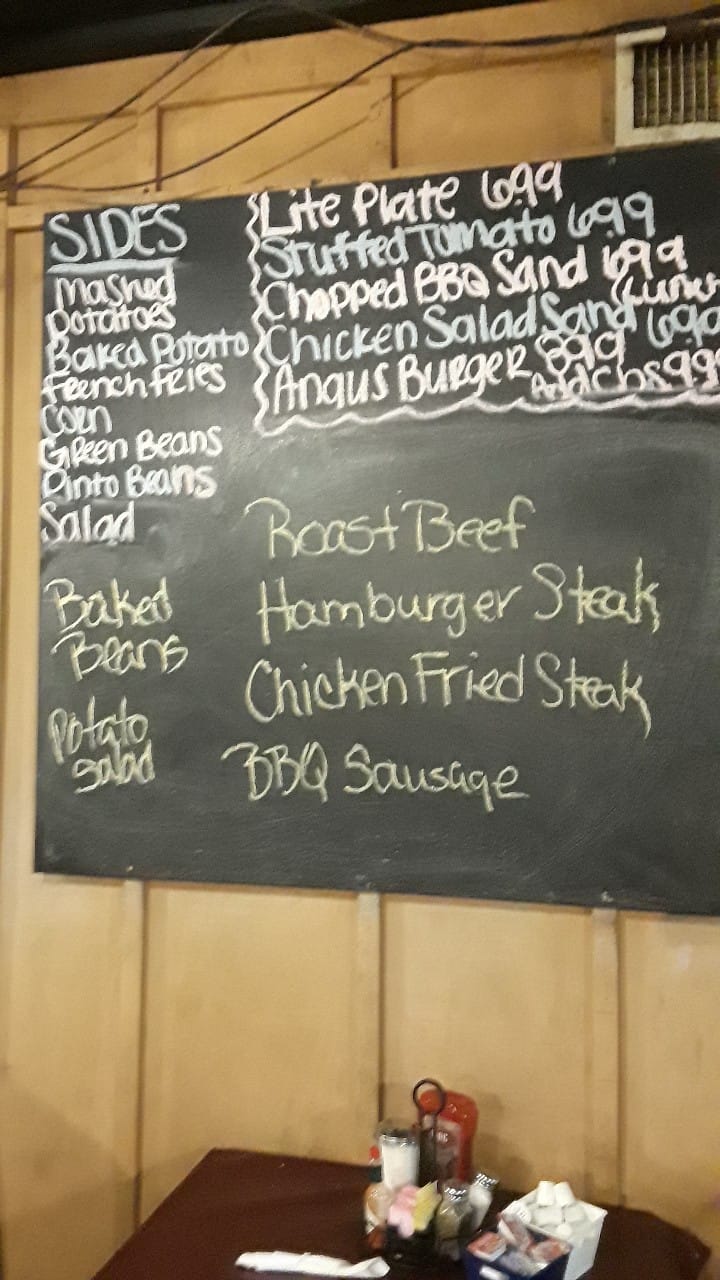 SIDES
Mashed
Potatoes
Baked Potatto
French Fries
Corn
Green Beans
Pinto Beans
Salad
Baked
Beans
Potato
Salad
Lite Plate 6.99
Stuffed Tomato 6.99
Chopped BBQ Sand 6.99
Chicken Salad Sand
Angus Burger 8.99
Add Chs 99
Roast Beef
Hamburger Steak
Chicken Fried Steak
BBQ Sausage